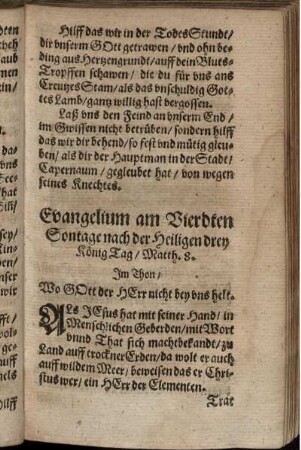 Hilff das wir in der Todes Stunde/
dir vnserm GOtt getrawen/ vnd ohn be-
ding aus Hertzengrundt/ auff dein Bluts-
Tropffen schawen/ die du für vns ans
Creutzes Stam/ als das vnschuldig Got-
tes Lamb/ gantz willig hast vergossen.
Laß vns den Feind an vnserm End/
im Gwissen nicht betrüben/ sondern hilff
das wir dir behend/ so fest vnd mütig gleu-
ben/ als dir der Hauptman in der Stadt/
Capernaum/ gegleubet hat/ von wegen
seines Knechtes.
Evangelium am Vierdten
Sontage nach der Heiligen drey
König Tag/ Matth. 8.
Im Thon/
Wo GOtt der HErr nicht bey vns helt.
ALs JEsus hat mit seiner Hand/ in
Menschlichen Geberden/ mit Wort
vnnd That sich macht bekandt/ zu
Land auff trockner Erden/ da wolt er auch
auff wildem Meer/ beweisen das er Chri-
stus wer/ ein HErr der Elementen.
Trat